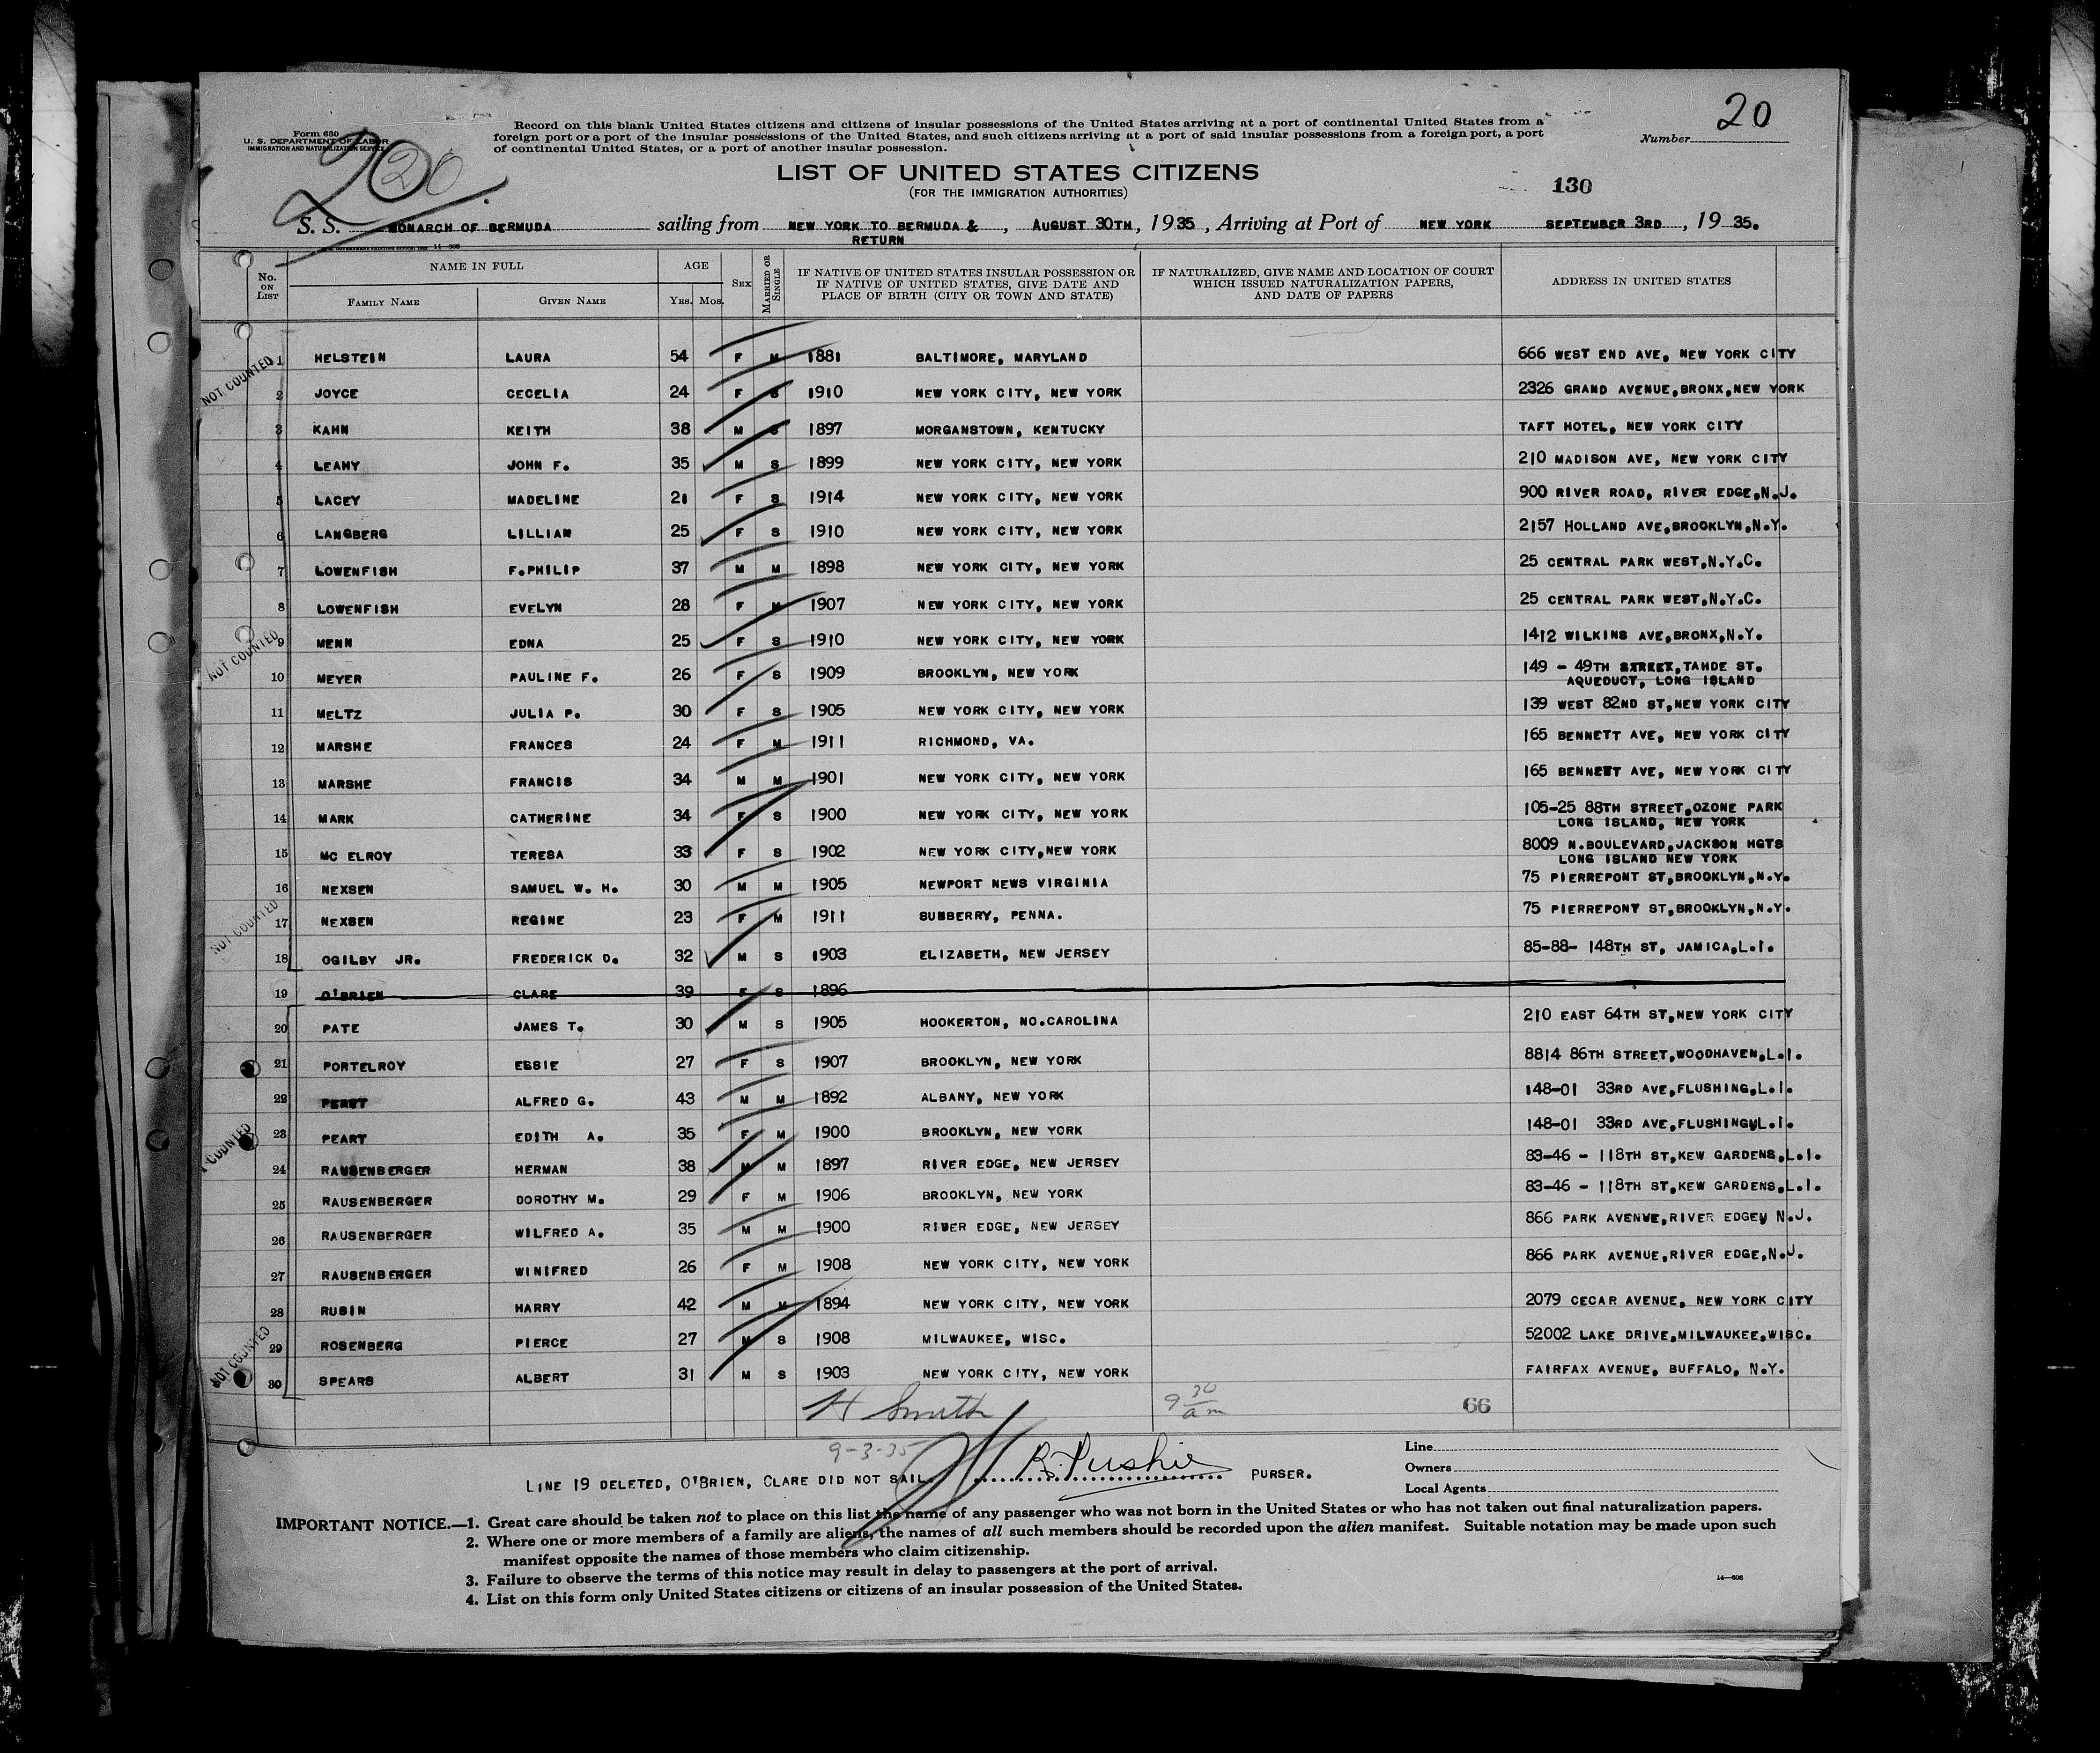 20
Form 630
U. S. DEPARTMENT OF LABOR
IMMIGRATION AND NATURALIZATION SERVICE
20
Record on this blank United States citizens and citizens of insular possessions of the United States arriving at a port of continental United States from a
foreign port or a port of the insular possessions of the United States, and such citizens arriving at a port of said insular possessions from a foreign port, a port
of continental United States, or a port of another insular possession.
Number 20
LIST OF UNITED STATES CITIZENS
(FOR THE IMMIGRATION AUTHORITIES)
130
S. S. MONARCH OF BERMUDA sailing from NEW YORK TO BERMUDA & RETURN, AUGUST 30TH, 1935, Arriving at Port of NEW YORK SEPTEMBER 3RD, 1935.
No. ON LIST NAME IN FULL AGE SEX MARRIED OR SINGLE IF NATIVE OF UNITED STATES INSULAR POSSESSION OR IF NATIVE OF UNITED STATES, GIVE DATE AND PLACE OF BIRTH (CITY OR TOWN AND STATE) IF NATURALIZED, GIVE NAME AND LOCATION OF COURT WHICH ISSUED NATURALIZATION PAPERS, AND DATE OF PAPERS ADDRESS IN UNITED STATES
FAMILY NAME GIVEN NAME YRS. MOS.
NOT COUNTED
1 HELSTEIN LAURA 54 F M 1881 BALTIMORE, MARYLAND 666 WEST END AVE, NEW YORK CITY
2 JOYCE CECELIA 24 F S 1910 NEW YORK CITY, NEW YORK 2326 GRAND AVENUE,BRONX,NEW YORK
3 KAHN KEITH 38 M S 1897 MORGANSTOWN, KENTUCKY TAFT HOTEL, NEW YORK CITY
4 LEAHY JOHN F. 35 M S 1899 NEW YORK CITY, NEW YORK 210 MADISON AVE, NEW YORK CITY
5 LACEY MADELINE 21 F S 1914 NEW YORK CITY, NEW YORK 900 RIVER ROAD, RIVER EDGE,N.J.
6 LANGBERG LILLIAN 25 F S 1910 NEW YORK CITY, NEW YORK 2157 HOLLAND AVE,BROOKLYN,N.Y.
7 LOWENFISH F.PHILIP 37 M M 1898 NEW YORK CITY, NEW YORK 25 CENTRAL PARK WEST,N.Y.C.
8 LOWENFISH EVELYN 28 F M 1907 NEW YORK CITY, NEW YORK 25 CENTRAL PARK WEST,N.Y.C.
NOT COUNTED
9 MENN EDNA 25 F S 1910 NEW YORK CITY, NEW YORK 1412 WILKINS AVE,BRONX,N.Y.
10 MEYER PAULINE F. 26 F S 1909 BROOKLYN, NEW YORK 149 - 49TH STREET,TAHDE ST.
AQUEDUCT, LONG ISLAND
11 MELTZ JULIA P. 30 F S 1905 NEW YORK CITY, NEW YORK 139 WEST 82ND ST,NEW YORK CITY
12 MARSHE FRANCES 24 F M 1911 RICHMOND, VA. 165 BENNETT AVE, NEW YORK CITY
13 MARSHE FRANCIS 34 M M 1901 NEW YORK CITY, NEW YORK 165 BENNETT AVE, NEW YORK CITY
14 MARK CATHERINE 34 F S 1900 NEW YORK CITY, NEW YORK 105-25 88TH STREET,OZONE PARK
LONG ISLAND, NEW YORK
15 MC ELROY TERESA 33 F S 1902 NEW YORK CITY,NEW YORK 8009 N.BOULEVARD,JACKSON HGTS
LONG ISLAND NEW YORK
16 NEXSEN SAMUEL W. H. 30 M M 1905 NEWPORT NEWS VIRGINIA 75 PIERREPONT ST,BROOKLYN,N.Y.
NOT COUNTED
17 NEXSEN REGINE 23 F M 1911 SUBBERRY, PENNA. 75 PIERREPONT ST,BROOKLYN,N.Y.
18 OGILBY JR. FREDERICK D. 32 M S 1903 ELIZABETH, NEW JERSEY 85-88- 148TH ST, JAMICA,L.I.
19 O'BRIEN CLARE 39 F S 1896
20 PATE JAMES T. 30 M S 1905 HOOKERTON, NO.CAROLINA 210 EAST 64TH ST,NEW YORK CITY
21 PORTELROY ESSIE 27 F S 1907 BROOKLYN, NEW YORK 8814 86TH STREET,WOODHAVEN,L.I.
22 PERET ALFRED G. 43 M M 1892 ALBANY, NEW YORK 148-01 33RD AVE,FLUSHING,L.I.
23 PEART EDITH A. 35 F M 1900 BROOKLYN, NEW YORK 148-01 33RD AVE,FLUSHING,L.I.
T COUNTED
24 RAUSENBERGER HERMAN 38 M M 1897 RIVER EDGE, NEW JERSEY 83-46 - 118TH ST,KEW GARDENS,L.I.
25 RAUSENBERGER DOROTHY M. 29 F M 1906 BROOKLYN, NEW YORK 83-46 - 118TH ST,KEW GARDENS,L.I.
26 RAUSENBERGER WILFRED A. 35 M M 1900 RIVER EDGE, NEW JERSEY 866 PARK AVENUE,RIVER EDGE, N.J.
27 RAUSENBERGER WINIFRED 26 F M 1908 NEW YORK CITY, NEW YORK 866 PARK AVENUE,RIVER EDGE,N.J.
28 RUBIN HARRY 42 M M 1894 NEW YORK CITY, NEW YORK 2079 CECAR AVENUE, NEW YORK CITY
NOT COUNTED
29 ROSENBERG PIERCE 27 M S 1908 MILWAUKEE, WISC. 52002 LAKE DRIVE,MILWAUKEE,WISC.
30 SPEARS ALBERT 31 M S 1903 NEW YORK CITY, NEW YORK FAIRFAX AVENUE, BUFFALO, N.Y.
H Smith 9 30 am 66
9-3-35
LINE 19 DELETED, O'BRIEN, CLARE DID NOT SAIL. R. Pushie PURSER.
Line
Owners
Local Agents
IMPORTANT NOTICE.—1. Great care should be taken not to place on this list the name of any passenger who was not born in the United States or who has not taken out final naturalization papers.
2. Where one or more members of a family are aliens, the names of all such members should be recorded upon the alien manifest. Suitable notation may be made upon such
manifest opposite the names of those members who claim citizenship.
3. Failure to observe the terms of this notice may result in delay to passengers at the port of arrival.
4. List on this form only United States citizens or citizens of an insular possession of the United States.
14—606